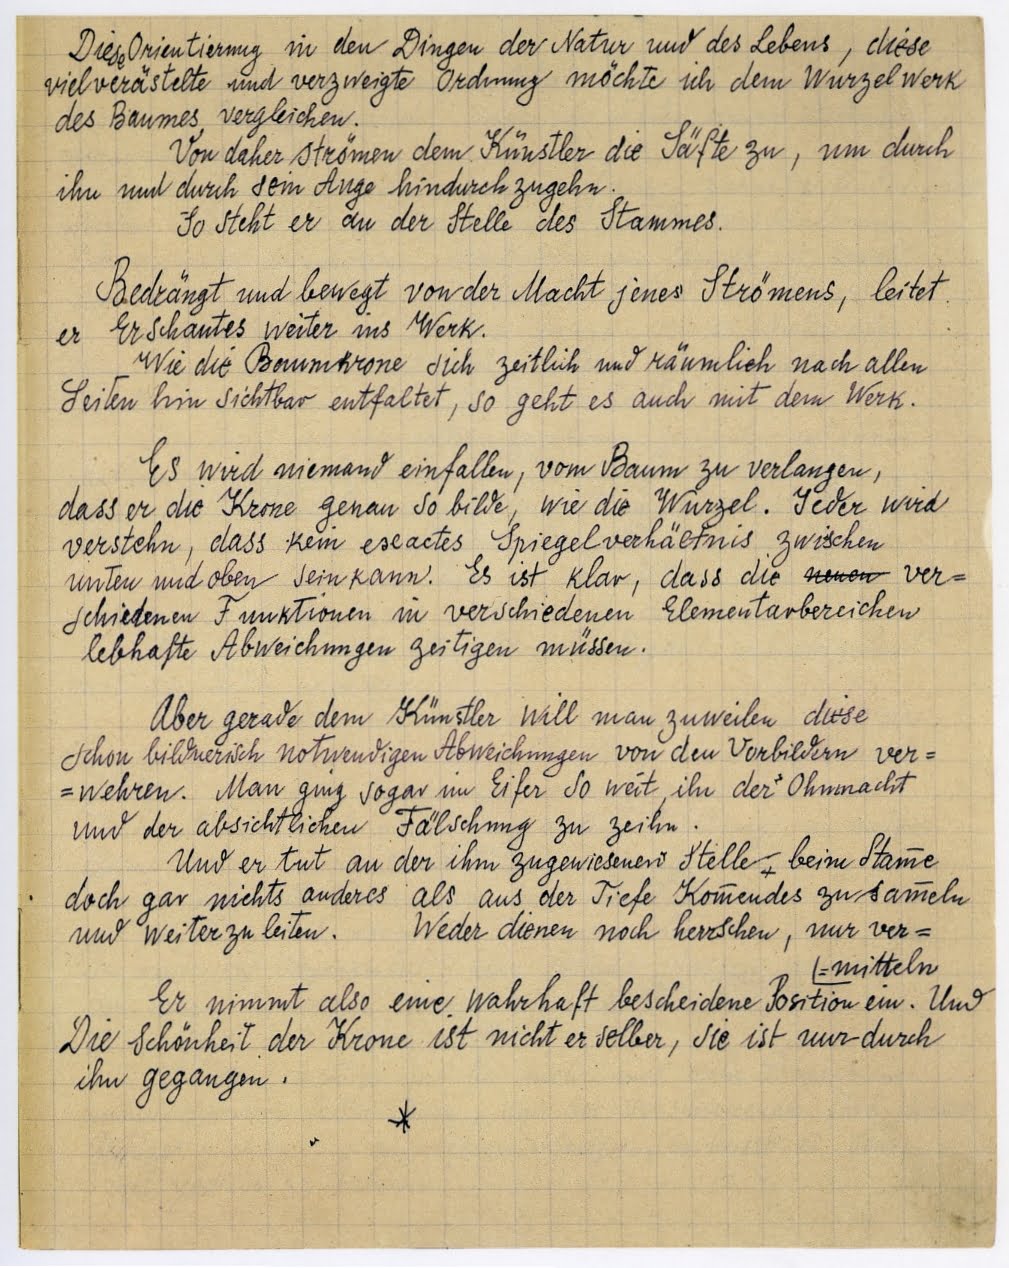 Diese Orientierung in den Dingen der Natur und des Lebens, diese
vielverästelte und verzweigte Ordnung möchte ich dem Wurzelwerk
des Baumes vergleichen.
Von daher strömen dem Künstler die Säfte zu, um durch
ihn und durch sein Auge hindurchzugehn.
So steht er an der Stelle des Stammes.
Bedrängt und bewegt von der Macht jenes Strömens, leitet
er Erschautes weiter ins Werk.
Wie die Baumkrone sich zeitlich und räumlich nach allen
Seiten hin sichtbar entfaltet, so geht es auch mit dem Werk.
Es wird niemand einfallen, vom Baum zu verlangen,
dass er die Krone genau so bilde, wie die Wurzel. Jeder wird
verstehn, dass kein exactes Spiegelverhältnis zwischen
unten und oben sein kann. Es ist klar, dass die neuen ver=
schiedenen Funktionen in verschiedenen Elementarbereichen
lebhafte Abweichungen zeitigen müssen.
Aber gerade dem Künstler will man zuweilen diese
schon bildnerisch notwendigen Abweichungen von den Vorbildern ver=
=wehren. Man ging sogar im Eifer so weit, ihn der Ohnmacht
und der absichtlichen Fälschung zu zeihn.
Und er tut an der ihm zugewiesenen Stelle beim Stam̅e
doch gar nichts anderes als aus der Tiefe Kom̅endes zu sam̅eln
und weiterzuleiten. Weder dienen noch herrschen, nur ver=
=mitteln
Er nimmt also eine wahrhaft bescheidene Position ein. Und
Die Schönheit der Krone ist nicht er selber, sie ist nur durch
ihn gegangen.
*